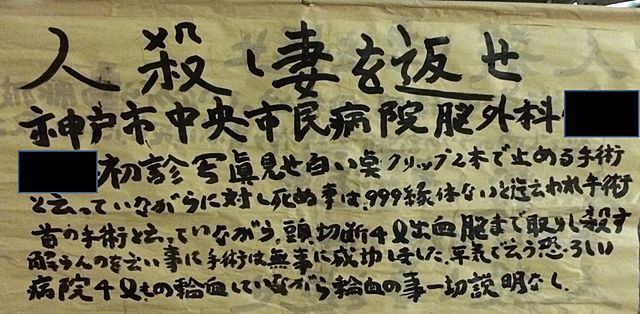 人殺し妻を返せ
神戸市中央市民病院脳外科
初診写真見せ白い奌クリップ2本で止める手術
と云っていながらに対し死ぬ事は、999縁体ないと迄云われ手術
首の手術と云っていながら、頭切断4ℓ出血脳まで取りし殺す
解うんのを云い事に手術は無事に成功しました、平気で云う恐ろしい
病院4ℓもの輸血していながら輸血の事一切説明なし